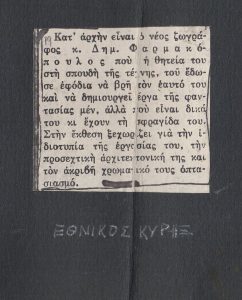 Κατ' ἀρχὴν εἶναι ὁ νέος ζωγρά-
φος κ. Δημ. Φαρμακό-
πουλος ποὺ ἡ θητεία του
στὴ σπουδὴ τῆς τέχνης, τοῦ ἔδω-
σε ἐφόδια νὰ βρῆ τὸν ἑαυτό του
καὶ νὰ δημιουργεῖ ἔργα τῆς φαν-
τασίας μέν, ἀλλὰ ποὺ εἶναι δικά
του κι ἔχουν τὴ σφραγίδα του.
Στὴν ἔκθεση ξεχωρίζει γιὰ τὴν ἰ-
διοτυπία τῆς ἐργασίας του, τὴν
προσεχτικὴ ἀρχιτεκτονική της καὶ
τὸν ἀκριβῆ χρωματικό τους ὀπτα-
σιασμό.
ΕΘΝΙΚΟΣ ΚΥΡΗΞ